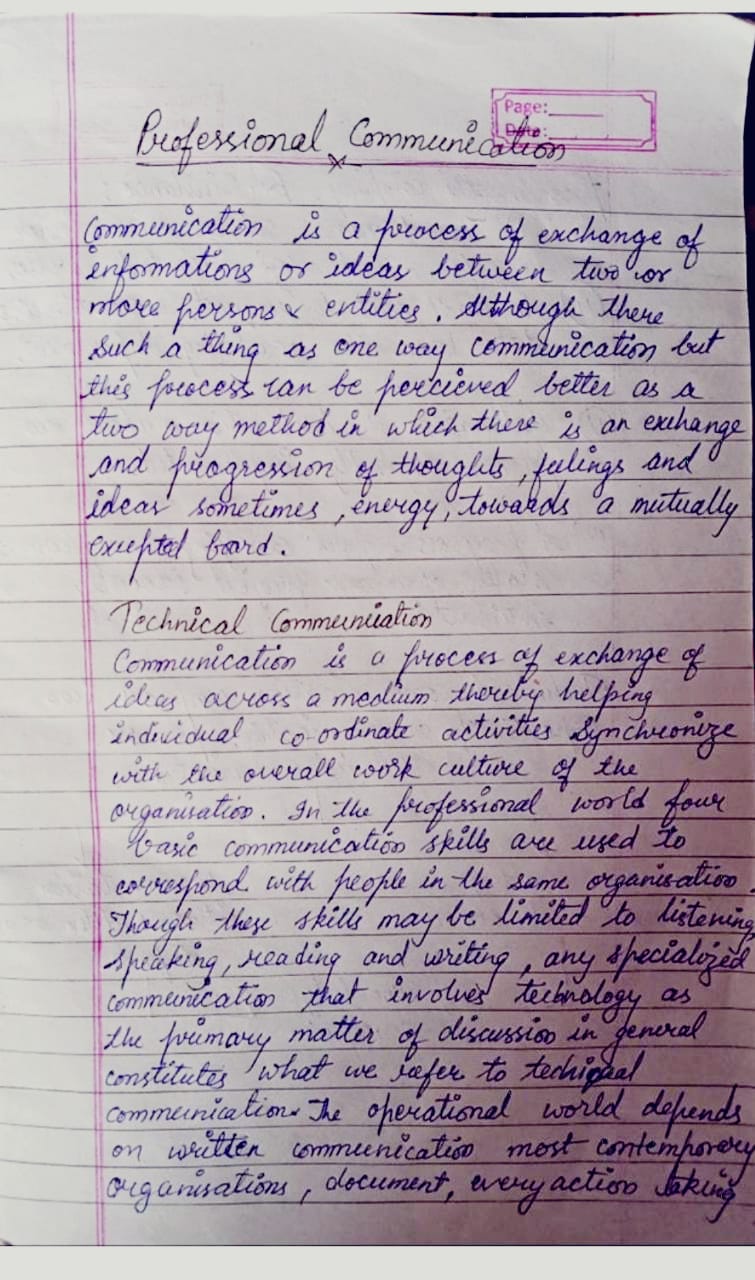 Page:
Date:
Professional Communication
Communication is a process of exchange of
informations or ideas between two or
more persons & entities. Although there
such a thing as one way communication but
this process can be percieved better as a
two way method in which there is an exchange
and progression of thoughts, feelings and
ideas sometimes, energy, towards a mutually
excepted board.
Technical Communication
Communication is a process of exchange of
ideas across a medium thereby helping
individual co-ordinate activities Synchronize
with the overall work culture of the
organisation. In the professional world four
basic communication skills are used to
correspond with people in the same organisation.
Though these skills may be limited to listening,
speaking, reading and writing, any specialized
communication that involves technology as
the primary matter of discussion in general
constitutes what we refer to techical
communication. The operational world depends
on written communication most contemporary
organisations, document, every action taking